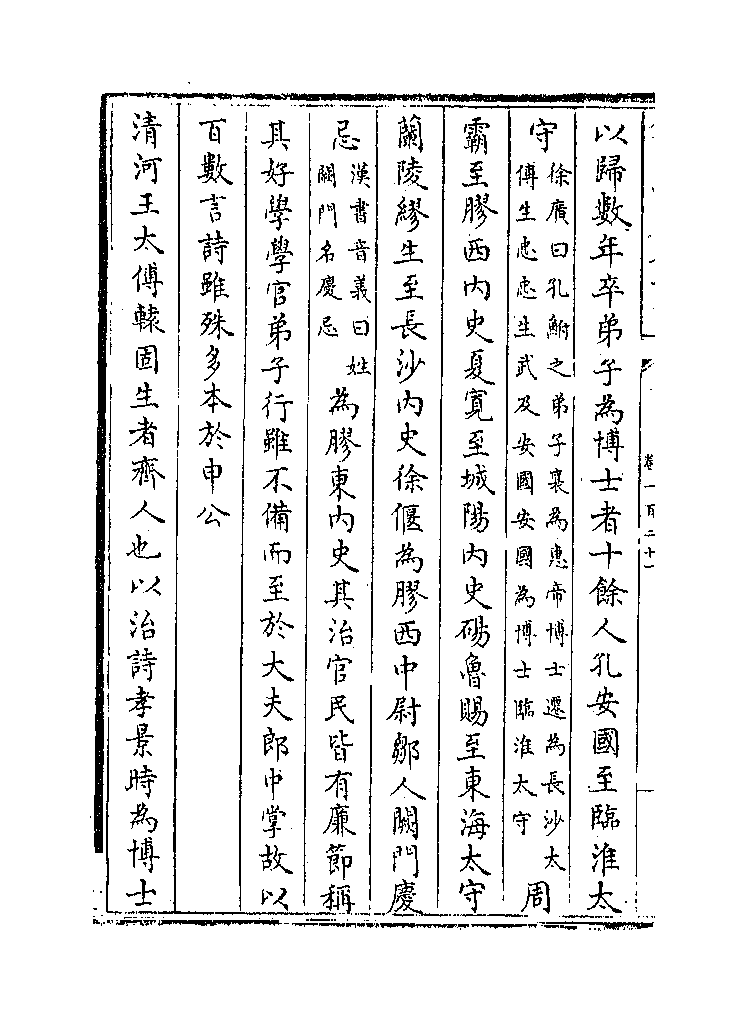 卷一百二十一
以歸數年卒弟子為博士者十餘人孔安國至臨淮太
守徐廣曰孔鮒之弟子襄為惠帝博士遷為長沙太
傅生忠忠生武及安國安國為博士臨淮太守周
霸至膠西内史夏寛至城陽内史碭魯賜至東海太守
蘭陵繆生至長沙内史徐偃為膠西中尉鄒人闕門慶
忌漢書音義曰姓
闕門名慶忌為膠東内史其治官民皆有廉節稱
其好學學官弟子行雖不備而至於大夫郎中掌故以
百數言詩雖殊多本於申公
清河王太傅轅固生者齊人也以治詩孝景時為博士